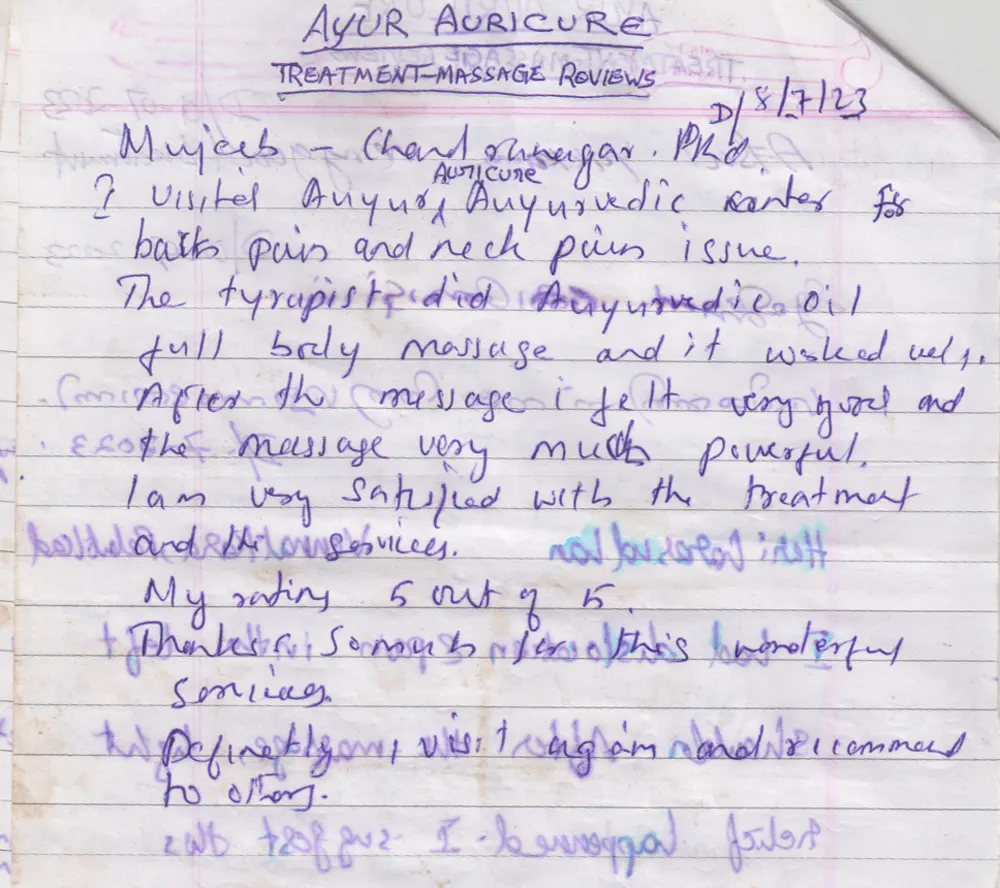 AYUR AURICURE
TREATMENT-MASSAGE REVIEWS
D/ 8/7/23
Mujeeb - Chandranagar. PKd.
I visited Auyur, AURICURE Auyurvedic center for
back pain and neck pain issue.
The tyrapist did Auyurvedic oil
full body massage and it woked well.
After the messages i felt very good and
the massage very much powerful.
I am very satisfied with the treatment
and the services.
My rating 5 out of 5.
Thanks so much for this wonderful
services.
Definetly I visit again and recommend
to others.